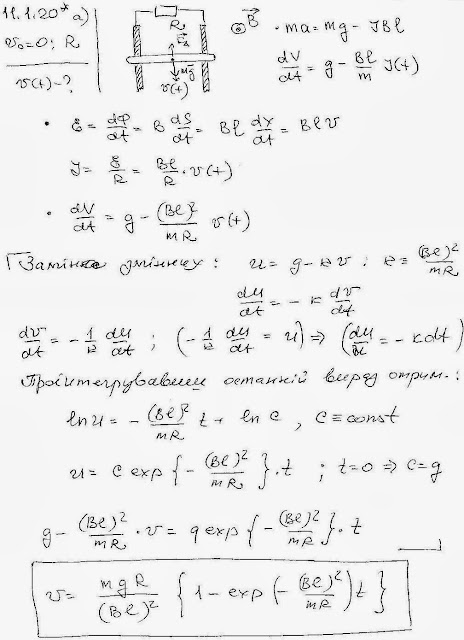 11.1.20* а)
v₀=0; R
v(t)-?
R
F_A
mg⃗
v(t)
⊙B⃗
· ma = mg - JBl
dV/dt = g - Bl/m J(t)
· ℰ = dφ/dt = B dS/dt = Bl dx/dt = Blv
J = ℰ/R = Bl/R · v(t)
· dV/dt = g - (Bl)²/mR v(t)
Заміна змінних: u = g - кv; к ≡ (Bl)²/mR
du/dt = - к dv/dt
dv/dt = - 1/к du/dt ; (- 1/к du/dt = u) ⇒ (du/u = - кdt)
Проінтегрувавши останній вираз отрим.:
ln u = - (Bl)²/mR t + ln c , c ≡ const
u = c exp{- (Bl)²/mR}·t ; t=0 ⇒ c=g
g - (Bl)²/mR · v = g exp{- (Bl)²/mR}·t
v = mgR/(Bl)² {1 - exp(- (Bl)²/mR)t}